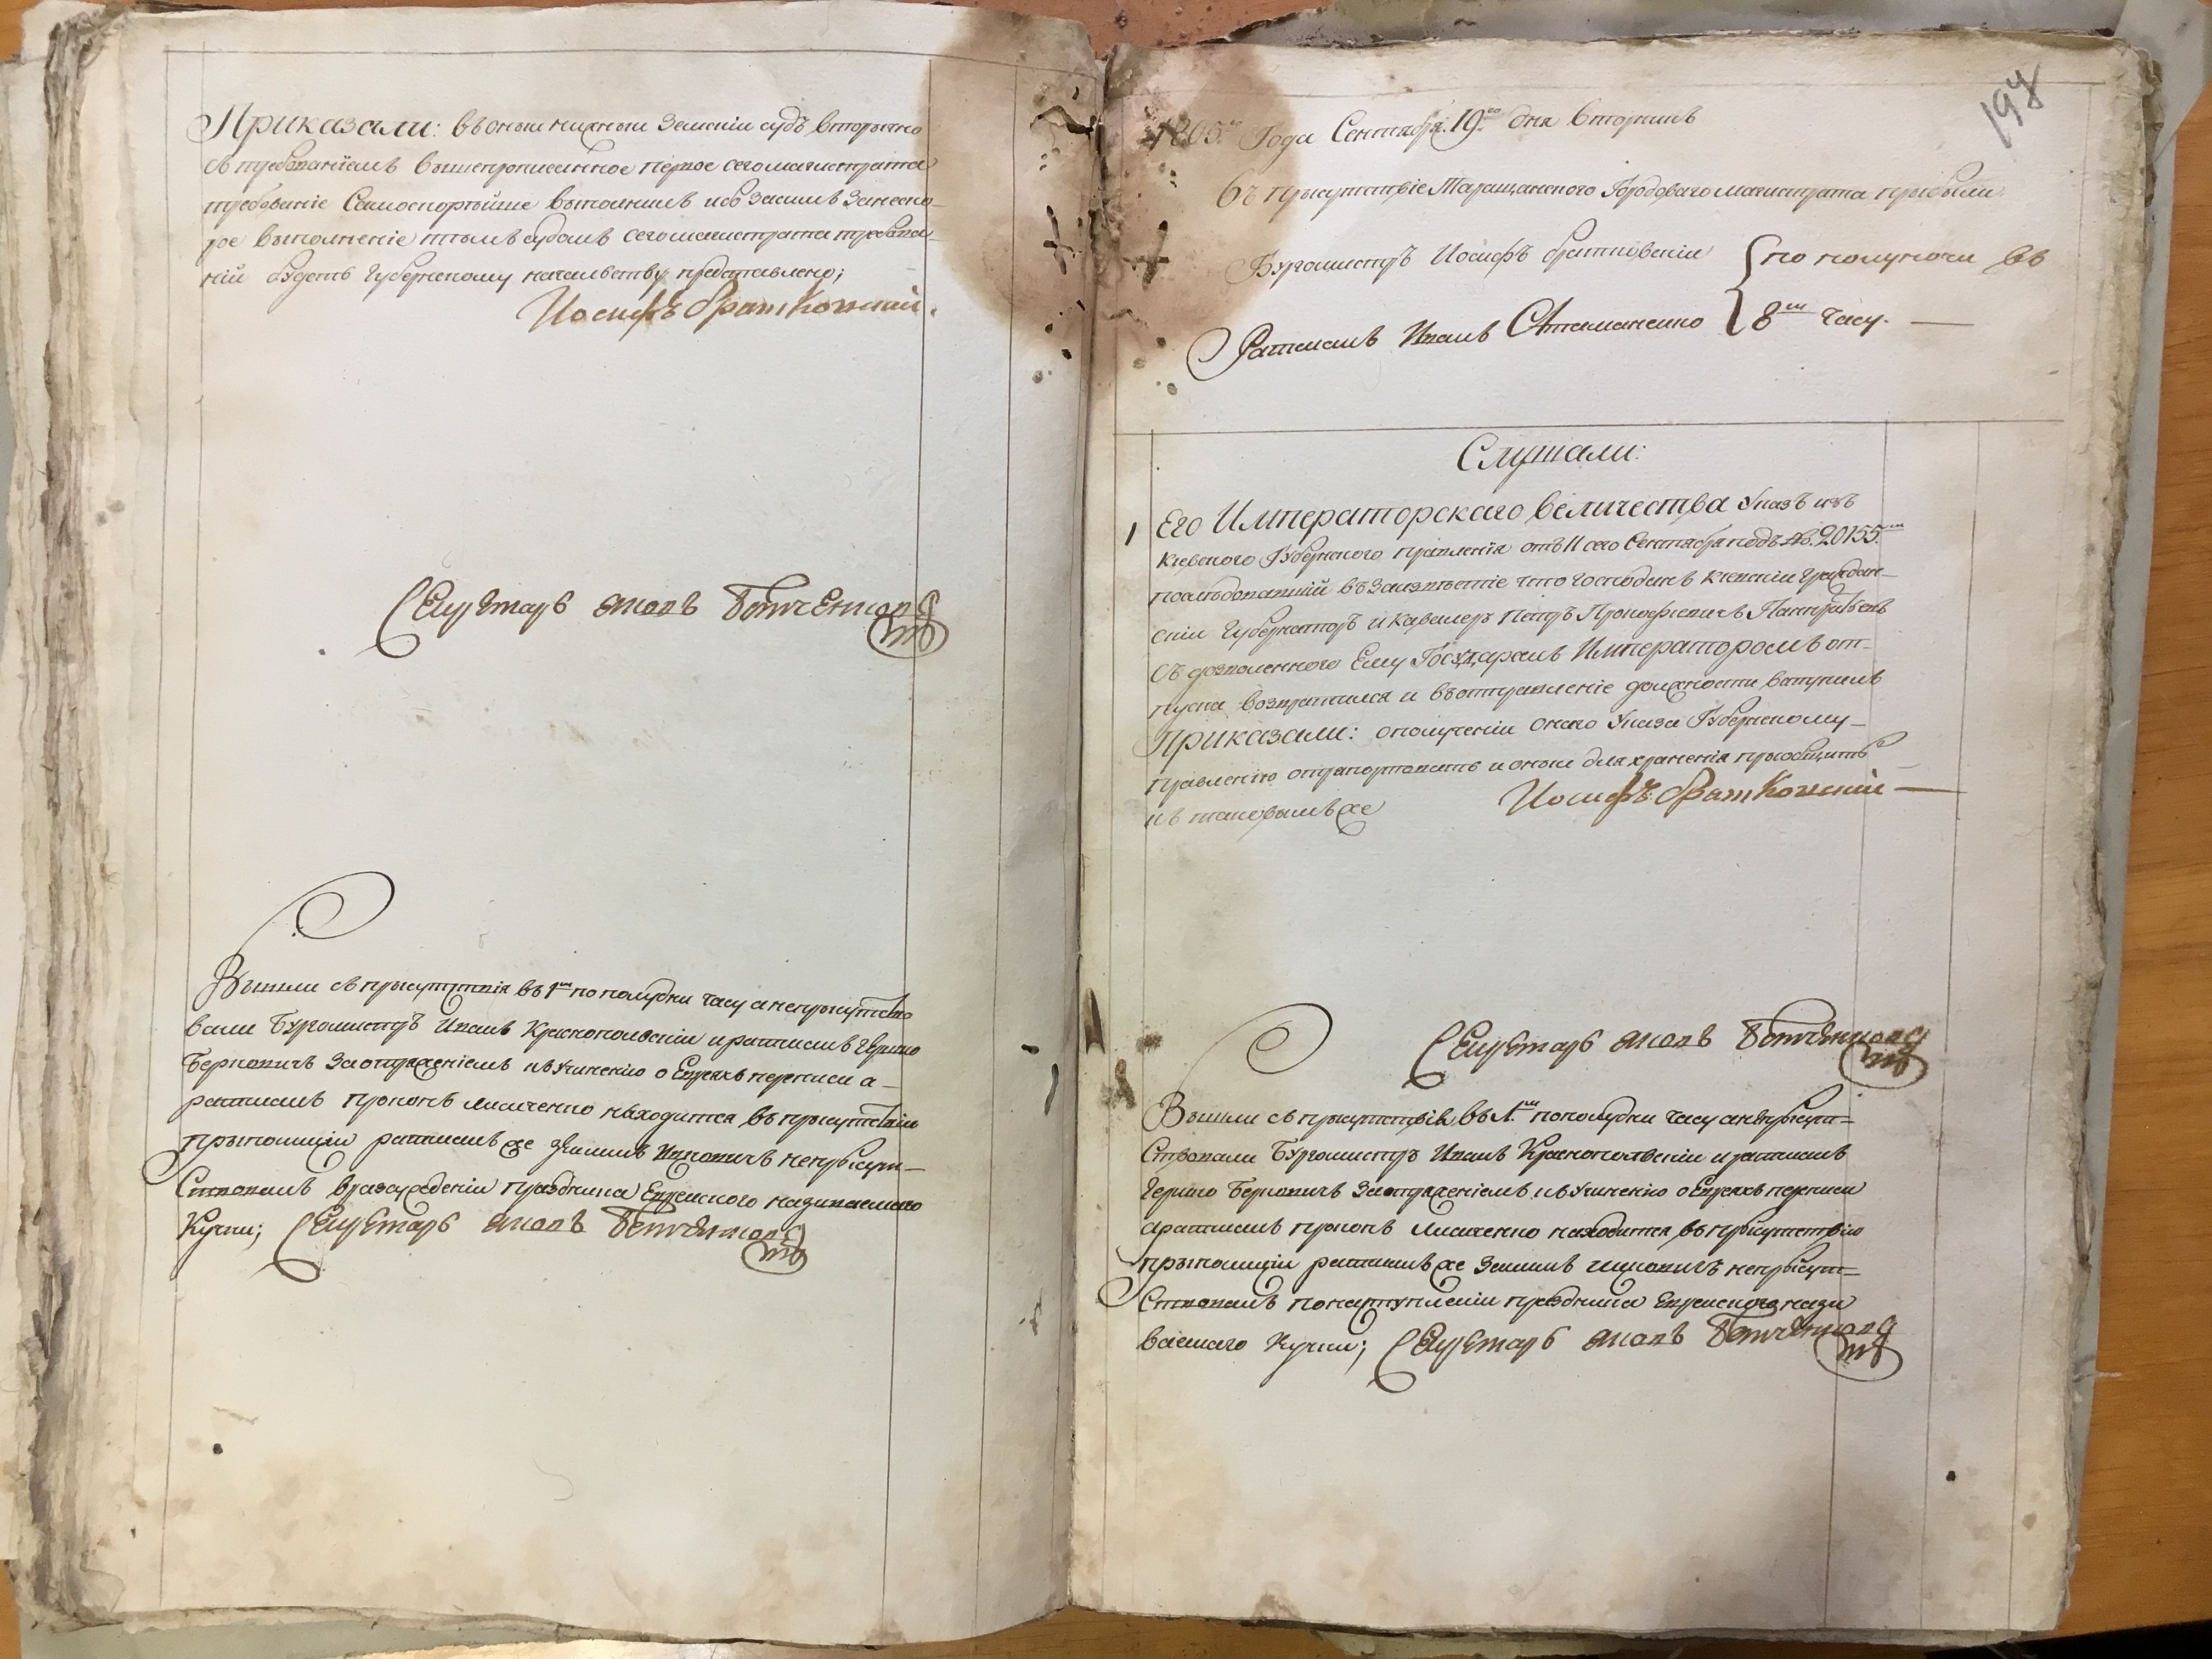 Приказали: въ оный нижный Земскій судъ вторычно
съ требованіемъ вышепрописенное первое сего магистрата
требованіе Самоскорѣйше выполнилъ ибо Засимъ Занеско-
рое выполненіе тѣмъ судомъ сего магистрата требова-
ній будетъ Губернскому начальству представлено;
Иосифъ братковскій.
Секретарь Яковъ
Вышли съ прысутствія въ 1м пополудни часу а непрысутство
вали Бургомистръ Иванъ Краснопольскій и ратманъ Гершко
Берковичъ Заотряженіемъ къ Учиненію о Евреяхъ переписи а-
ратманъ Прокопъ Лисиченко находится въ прысутствіи
прытомщіи ратманъ же Ицковичъ непрысут-
Ствовалъ вразсужденіи праздника Еврейского називаемого
Кучки; Секретарь Яковъ
194
1805го Года Сентября 19го дня вторникъ
Въ прысутствіе Таращанского Городоваго магистрата прыбыли
Бургомистръ Иосифъ братковскій
по полуночи въ
Ратманъ Иванъ Атаманенко
8м часу.
Слушали:
1 Его Императорскаго величества Указъ изъ
Кіевского Губернского правленія отъ 11 сего Сентября подъ №. 20155м
послѣдовавшій въ Заизвѣстіе что господинъ кіевскій граждан-
скій Губернаторъ и Кавалеръ Петръ Прокофіевичъ Панкратьевъ
съ дозволенного Ему Государемъ Императоромъ от-
пуска возвратился и въ отправленіе должности вступилъ
Приказали: ополученіи онаго Указа Губернскому-
правленію отрапортовать и оный для храненія пріобщить
къ таковымъ же
Иосифъ братковскій
Секретарь Яковъ
Вышли съ прысутствія въ 1м пополудни часу а непрысут-
Ствовали Бургомистръ Иванъ Краснопольскій и ратманъ
Гершко Берковичъ Заотряженіемъ къ Учиненію о Евреяхъ переписи
аратманъ Прокопъ Лисиченко находится въ прысутствію
прытомщіи ратманъ же Ицковичъ непрысут-
Ствовалъ понаступленіи праздника Еврейского нази
ваемаго Кучки; Секретарь Яковъ